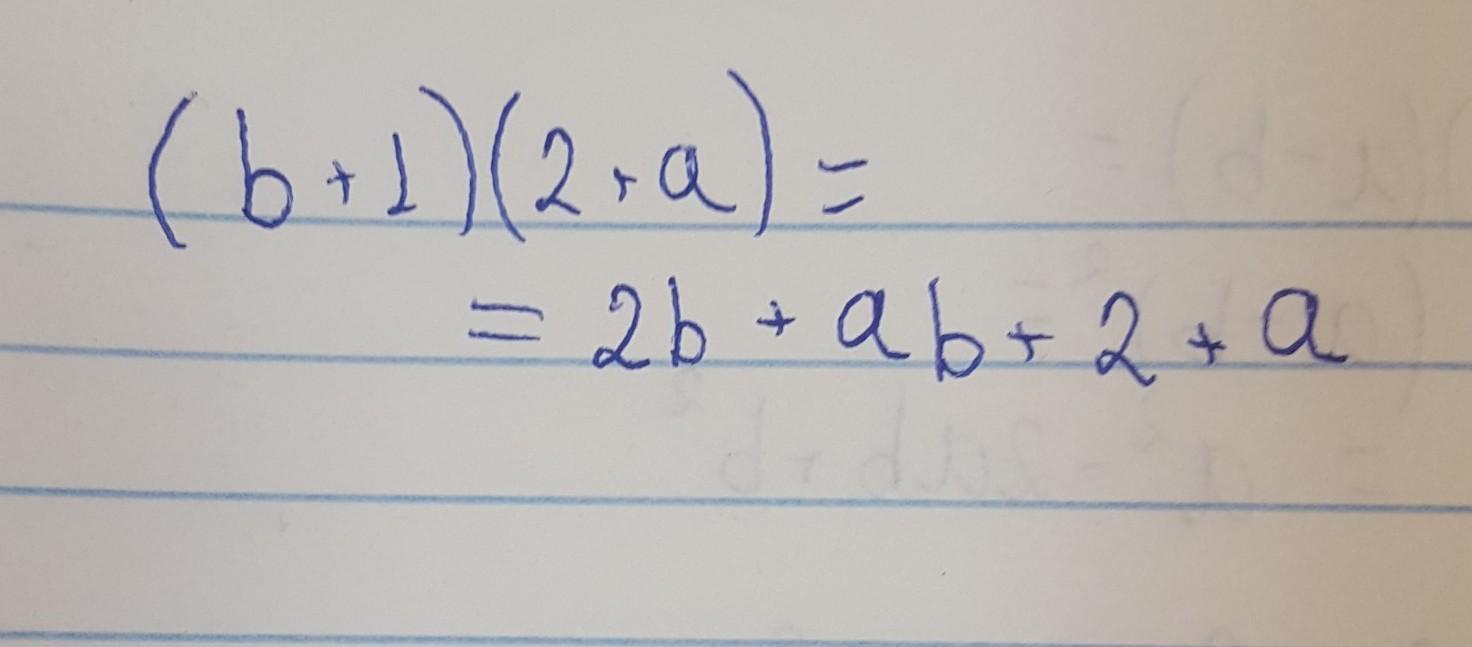 (b+1)(2+a)=
=2b+ab+2+a